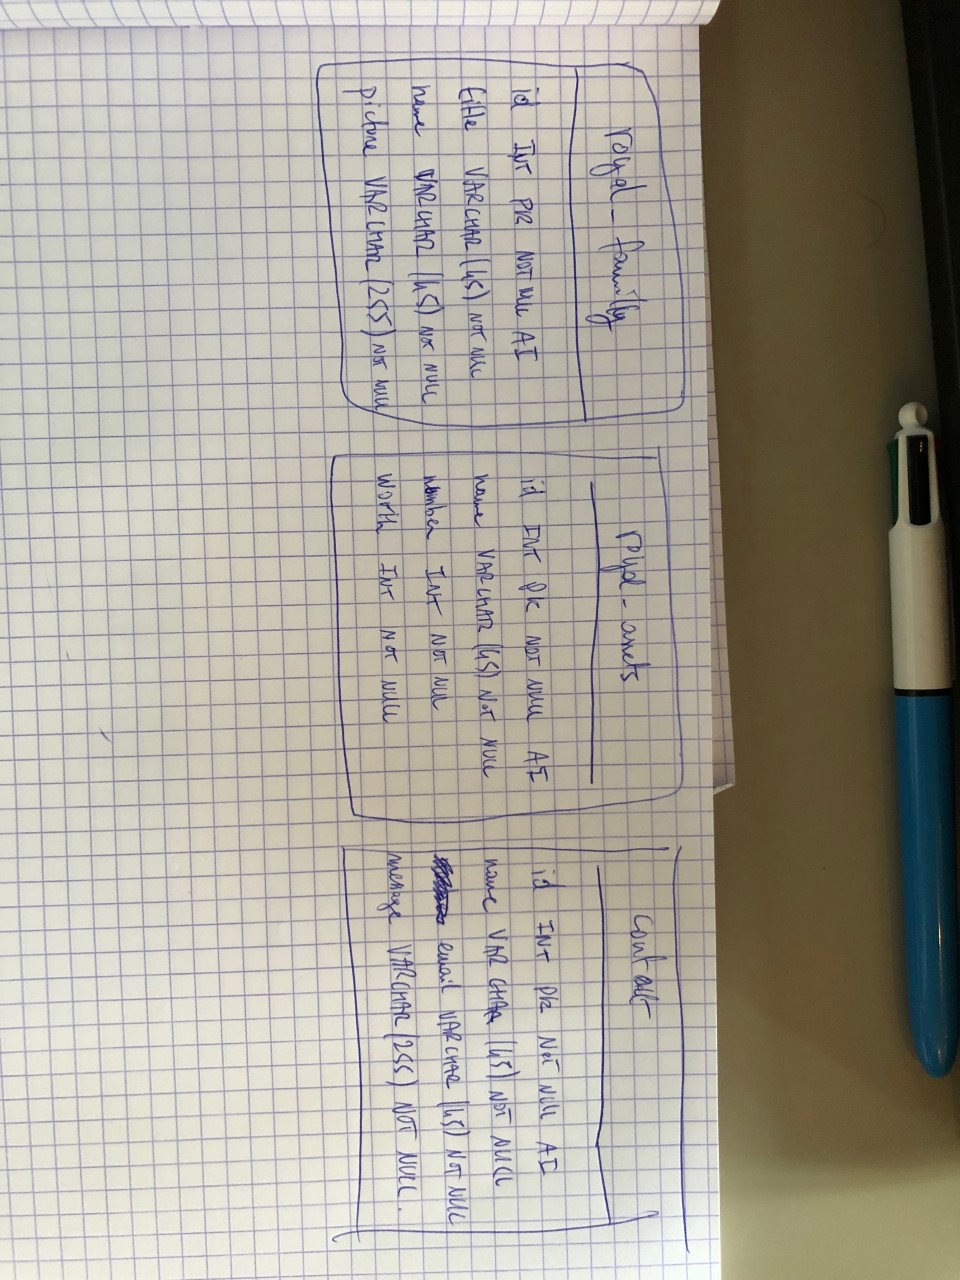 royal_family
id INT PK NOT NULL AI
title VARCHAR(45) NOT NULL
name VARCHAR(45) NOT NULL
picture VARCHAR(255) NOT NULL
royal_assets
id INT PK NOT NULL AI
name VARCHAR(45) NOT NULL
number INT NOT NULL
worth INT NOT NULL
contact
id INT PK NOT NULL AI
name VARCHAR(45) NOT NULL
email VARCHAR(45) NOT NULL
message VARCHAR(255) NOT NULL.